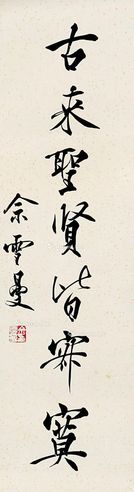 古來聖賢皆寂寞
佘雪曼